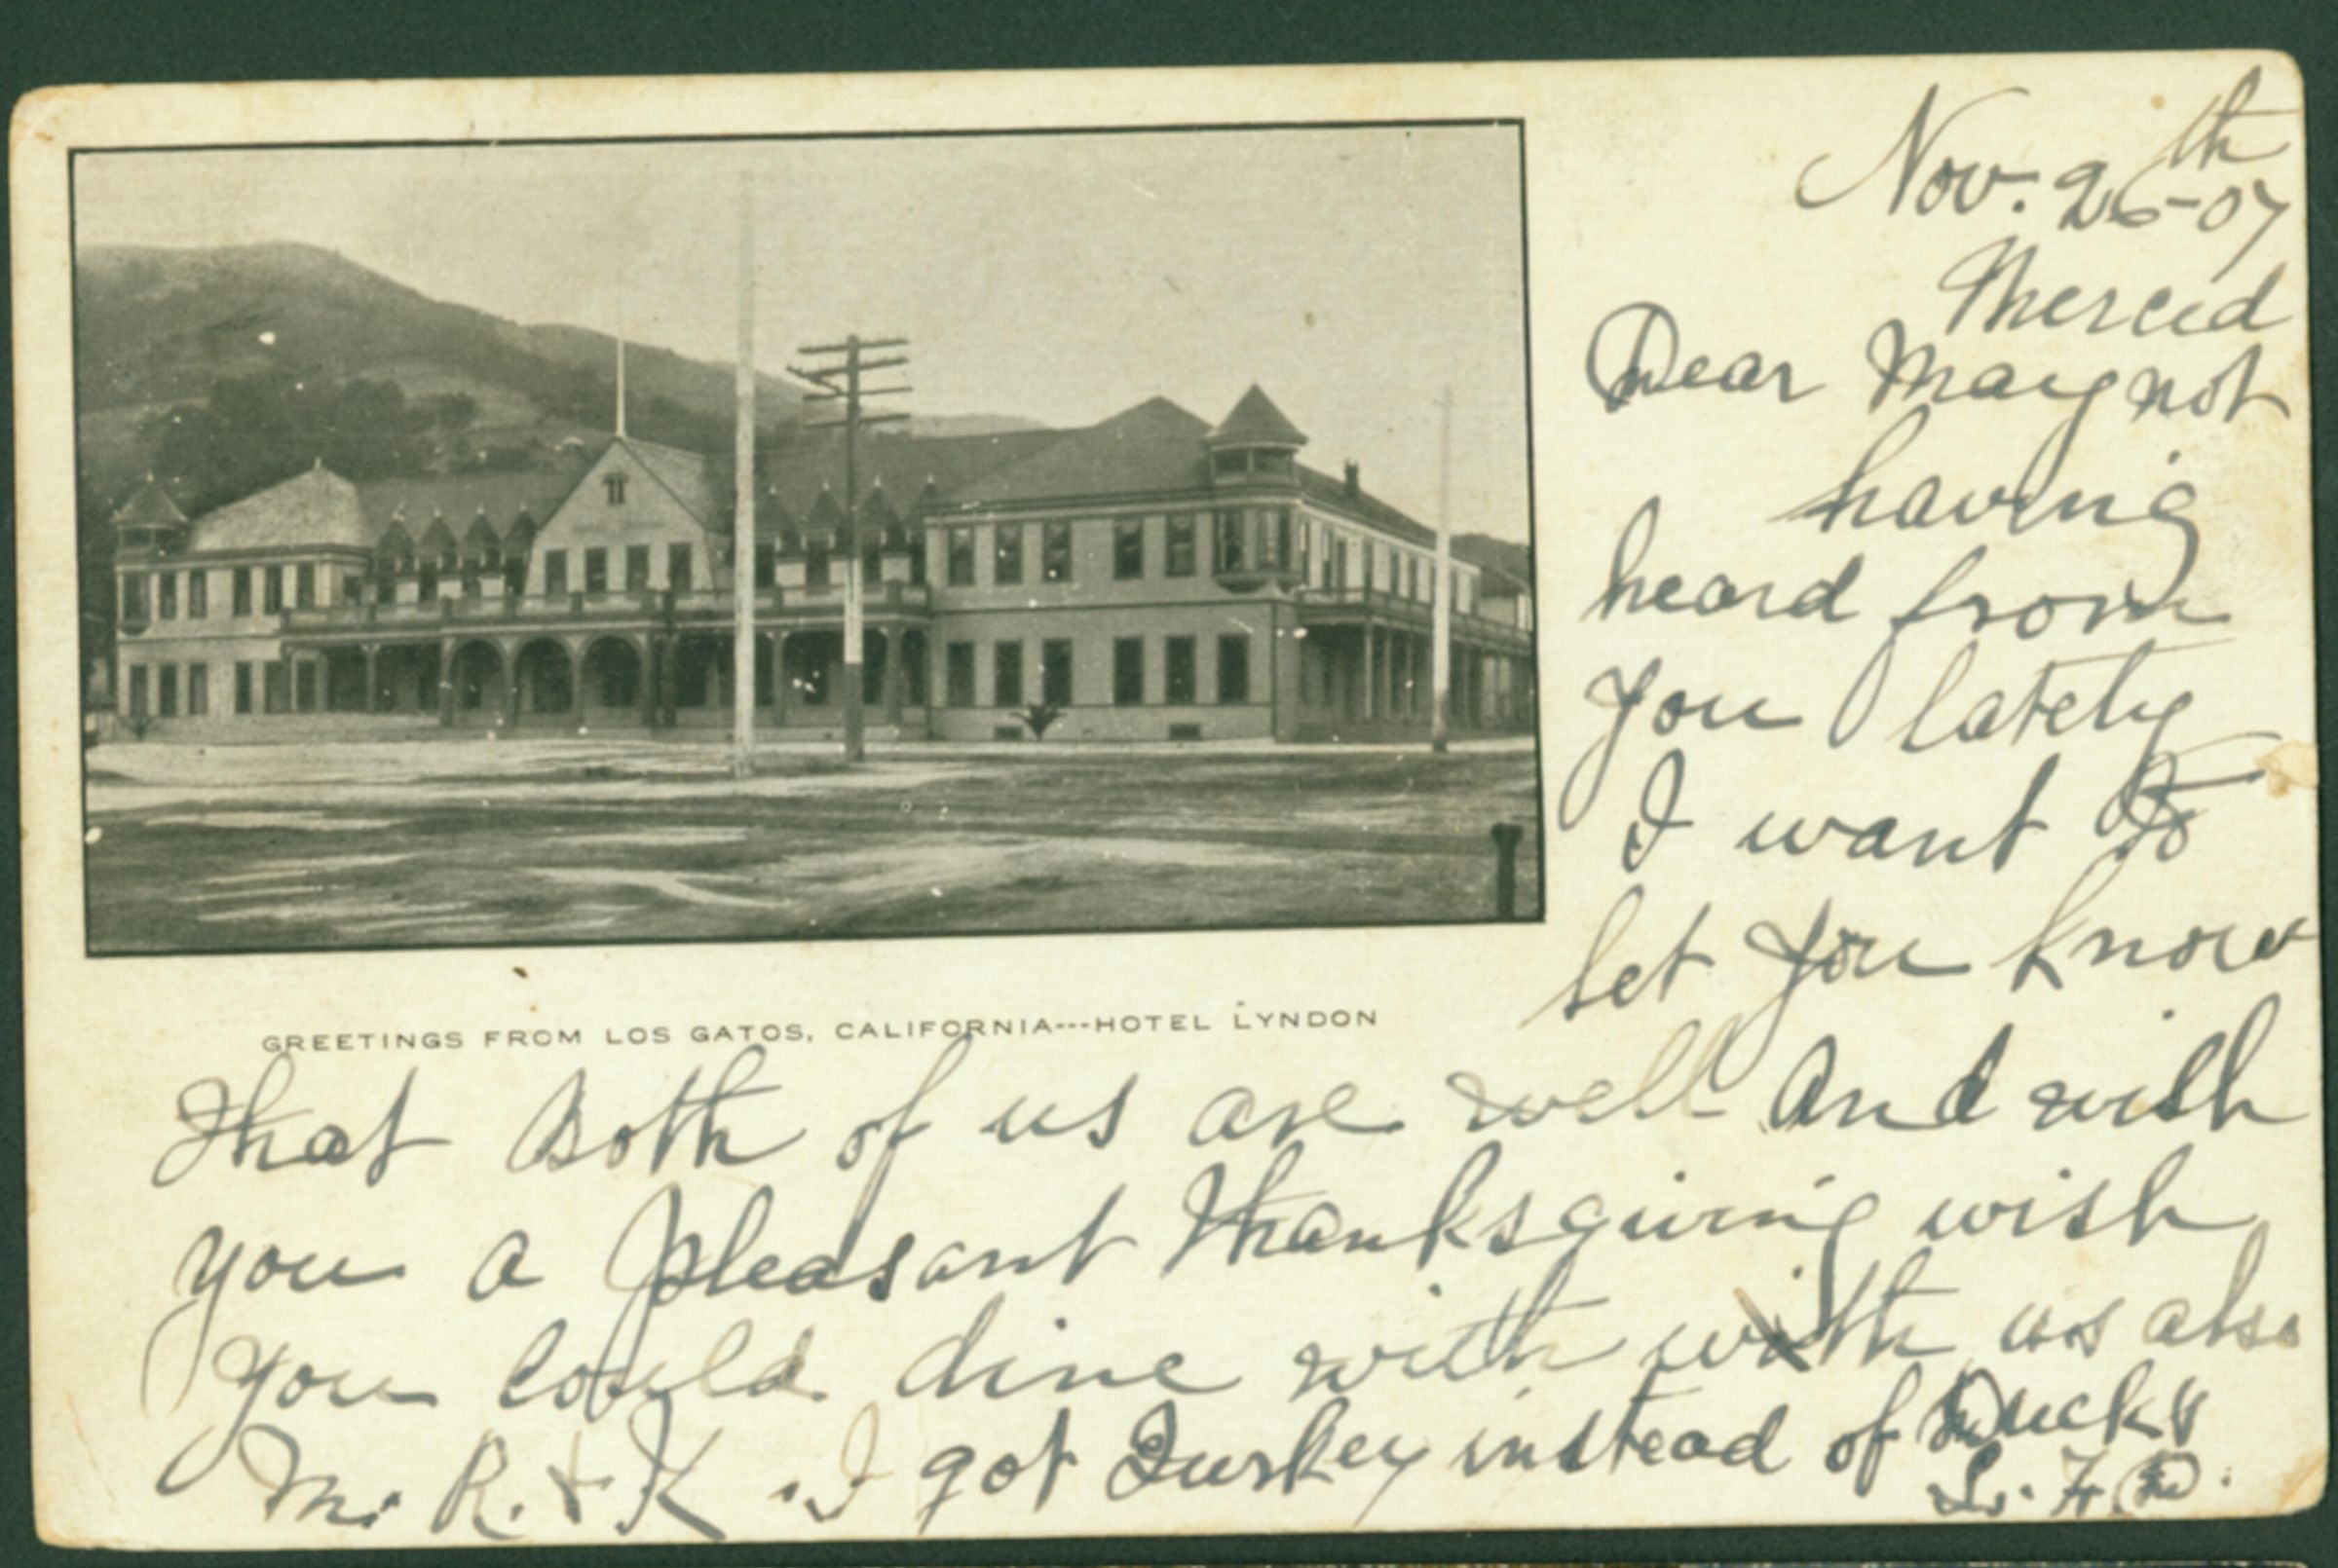 Nov. 26th-07
Merced
Dear May not
having
heard from
you lately
I want to
let you know
GREETINGS FROM LOS GATOS, CALIFORNIA---HOTEL LYNDON
that Both of us are well And wish
you a pleasant Thanksgiving wish
you could dine with with us also
M. R. & K. I got Turkey instead of Ducks
L. F. D.